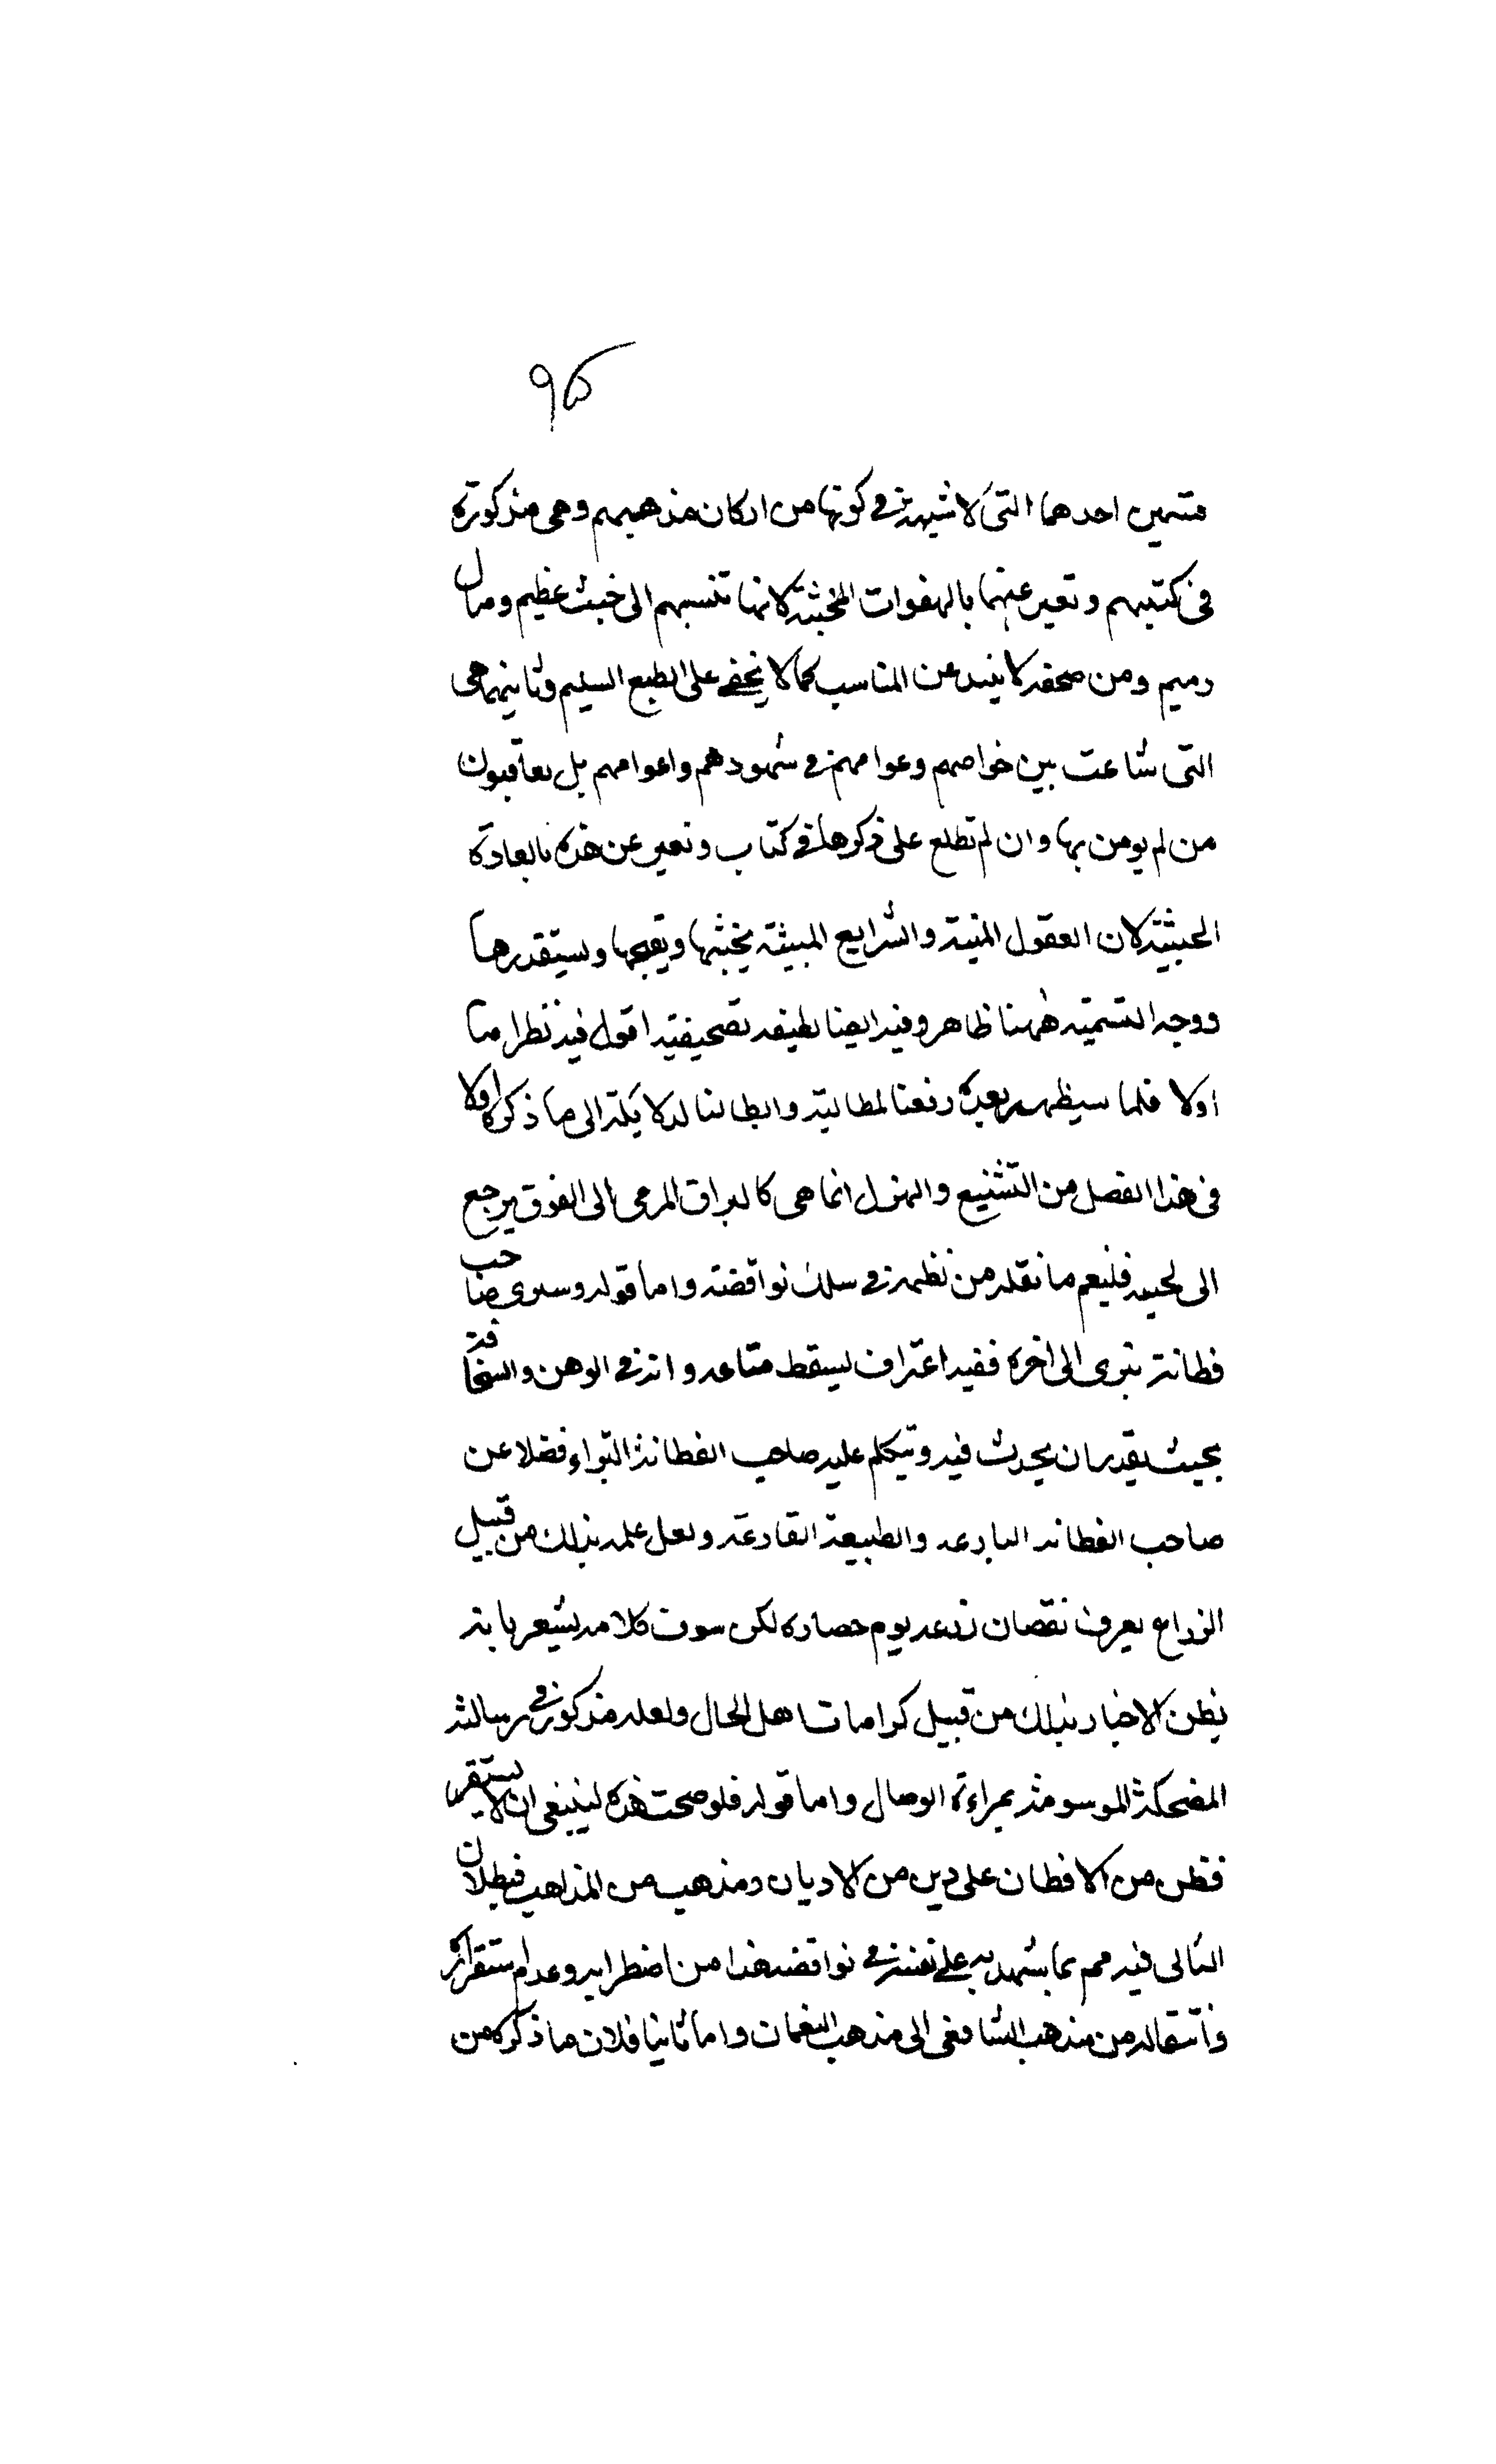 ٩٥
قسمين احدهما التى لا شبهة في كونها من اركان مذهبهم وهى مذكورة
فى كتبهم ونعبر عنهما بالهفوات المخبثة لانها تنسبهم الى خبث عظيم ومال
رميم ومن صحفه لا يبعد عن المناسب كما لا يخفى على الطبع السليم وثانيهما هى
التى شاعت بين خواصهم وعوامهم في شهودهم واعوامهم بل يعاقبون
من لم يومن بها وان لم نطلع على ذكرها في كتاب ونعبر عن هذه بالعادة
الخبيثة لان العقول والشرايع يخبثها ويقبحها ويستقدرها
ووجه التسمية ههنا ظاهر وفيه ايضا لطيفه تصحيفية اقول فيه نظر اما
اولا فلما سيظهر بعد رفعنا لمطالبة وابطالنا لدلايله الى ما ذكره اولا
فى هذا الفصل من التشنيع والهزل انما هى كالبراق المرمى الى الفوق يرجع
الى لحيته فليعم ما نقله من نظمه في سلك نواقضته واما قوله وسيرى صاحب
فطانة تبرى الى اخره ففيه اعتراف بسقط متاعه وانه في الوهن والسخافة
بحيث يقدر ان يحدث فيه ويتكلم عليه صاحب الفطانة البتراء فضلا عن
صاحب الفطانه البارعه والطبيعة القارعة ولعل علمه بذلك من قبيل
الزراع يعرف نقصان زرعه يوم حصاده لكن سوف كلامه يشعر بانه
يظن الاخبار بذلك من قبيل كرامات اهل الحال ولعله مذكور في رسالته
المضحكة الموسومة بمراءة الوصال واما قوله فلو صحت هذه لينبغى ان لا يستقر
فطن من الافطان على دين من الاديان ومذهب من المذاهب فبطلان
التالى فيه مم بما يشهد به على نفسه في نواقضه هذا من اضطرابه وعدم استقراره
وانتقاله من مذهب الشافعى الى مذهب النعمان واما ثانيا فلان ما ذكره من